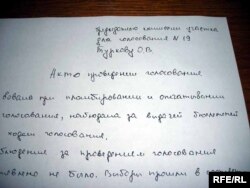 председателю комиссии участка
для голосования № 19
Буркову О.В.
Акт о проведении голосования
вовала при пломбировании и опечатывании
голосования, наблюдала за выдачей бюллетеней
ходом голосования,
блюдения за проведением голосования
овлено не было. Выборы прошли в
RFE/RL